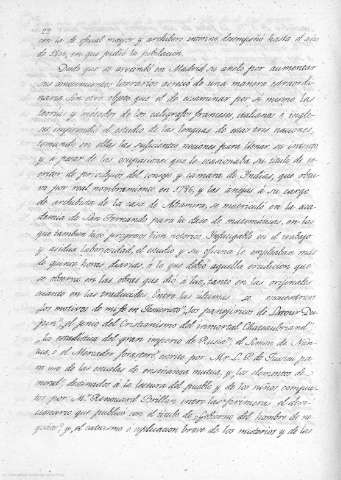 22
en la de oficial mayor y archivero interino desempeño hasta el año
de 1820, en que pidió la jubilacion.
Desde que se avecindó en Madrid su anelo por aumentar
sus conocimientos literarios creció de una manera estraordi-
naria. Sin otro objeto que el de examinar por si mismo las
teorias y metodos de los caligrafos franceses, italianos e ingle-
ses emprendió el estudio de las lenguas de estas tres naciones,
tomando en ellas las suficientes nociones para llenar su intento
y, a pesar de las ocupaciones que le ocasionaba su titulo de es-
critor de privilegios del consejo y camara de Indias, que obtu-
vo por real nombramiento en 1786, y las anejas a su cargo
de archivero de la casa de Altamira, se matriculó en la aca-
demia de San Fernando para la clase de matematicas, en las
que tambien hizo progresos bien notorios. Infatigable en el trabajo
y asidua laboriosidad, el estudio y su oficina le empleaban más
de quince horas diarias, á lo que debió aquella erudicion que
se observa en las obras que dió á luz, tanto en las originales
cuanto en las traducidas. Entre las ultimas se encuentran
los motivos de mi fé en Jesucristo", los panegiricos de
el genio del Cristianismo del inmortal Chateaubriand",
"La estadistica del gran imperio de Rusia", el Simon de Nan-
tua, ó el Mercader forastero, escrito por Mr. L. P. de Jussieu pa-
ra uso de las escuelas de enseñanza mutua, y los elementos de
moral, destinados a la lectura del pueblo y de los niños compues-
tos por Mr. entre las primeras el dic-
cionario que publicó con el titulo de gobierno del hombre de ne-
gocios", y, el catecismo o esplicacion breve de los misterios y de las